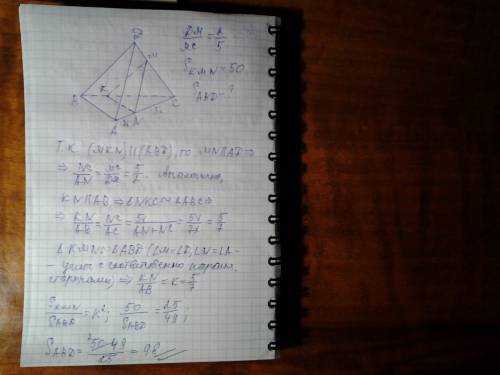 D
M
K
B
C
A
N
DM/MC = 2/5
S_KMN = 50
S_ABD - ?
Т.К (MKN) || (ABD), то MN || AD ⇒
⇒ NC/AN = MC/DM = 5/2. Аналогично,
KN || AB ⇒ ΔNKC ∾ ΔABC ⇒
⇒ KN/AB = NC/AC = 5x/AN+NC = 5x/7x = 5/7
Δ KMN ∾ ΔABD (∠M=∠D, ∠N=∠A -
- углы с соответственно паралл.
сторонами) ⇒ KN/AB = K = 5/7
S_KMN/S_ABD = K²; 50/S_ABD = 25/49;
S_ABD = 50·49/25 = 98